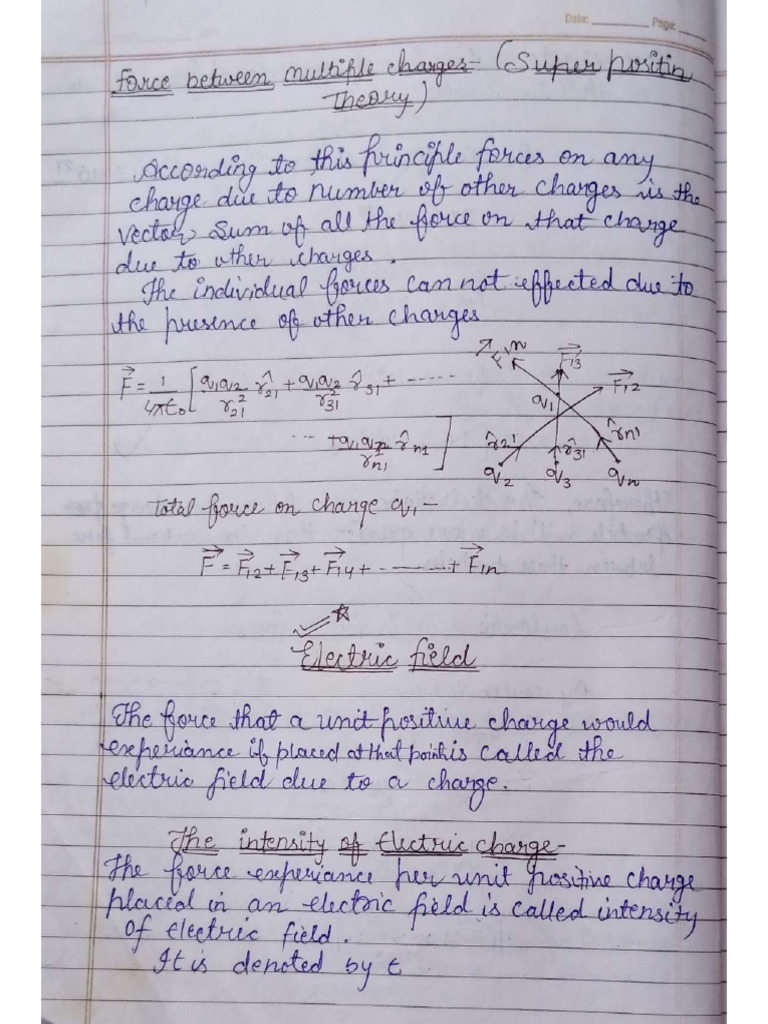 Date: ________ Page: ____
Force between multiple charges - (Super positin
Theory)
According to this principle forces on any
charge due to number of other charges is the
vector sum of all the force on that charge
due to other charges.
The individual forces can not effected due to
the presence of other charges
F⃗ = 1/4πε₀ [q₁q₂/r₂₁² r̂₂₁ + q₁q₂/r₃₁² r̂₃₁ + ------
... + q₁q₂/rn₁² r̂n₁]
F⃗₁n F⃗₁₃ F⃗₁₂
q₁
r̂₂₁ r̂₃₁ r̂n₁
q₂ q₃ qn
Total force on charge q₁ -
F⃗ = F⃗₁₂ + F⃗₁₃ + F⃗₁₄ + -------- + F⃗₁n
Electric field
The force that a unit positive charge would
experiance if placed at that point is called the
electric field due to a charge.
The intensity of Electric charge -
The force experiance per unit positive charge
placed in an electric field is called intensity
of electric field.
It is denoted by ε